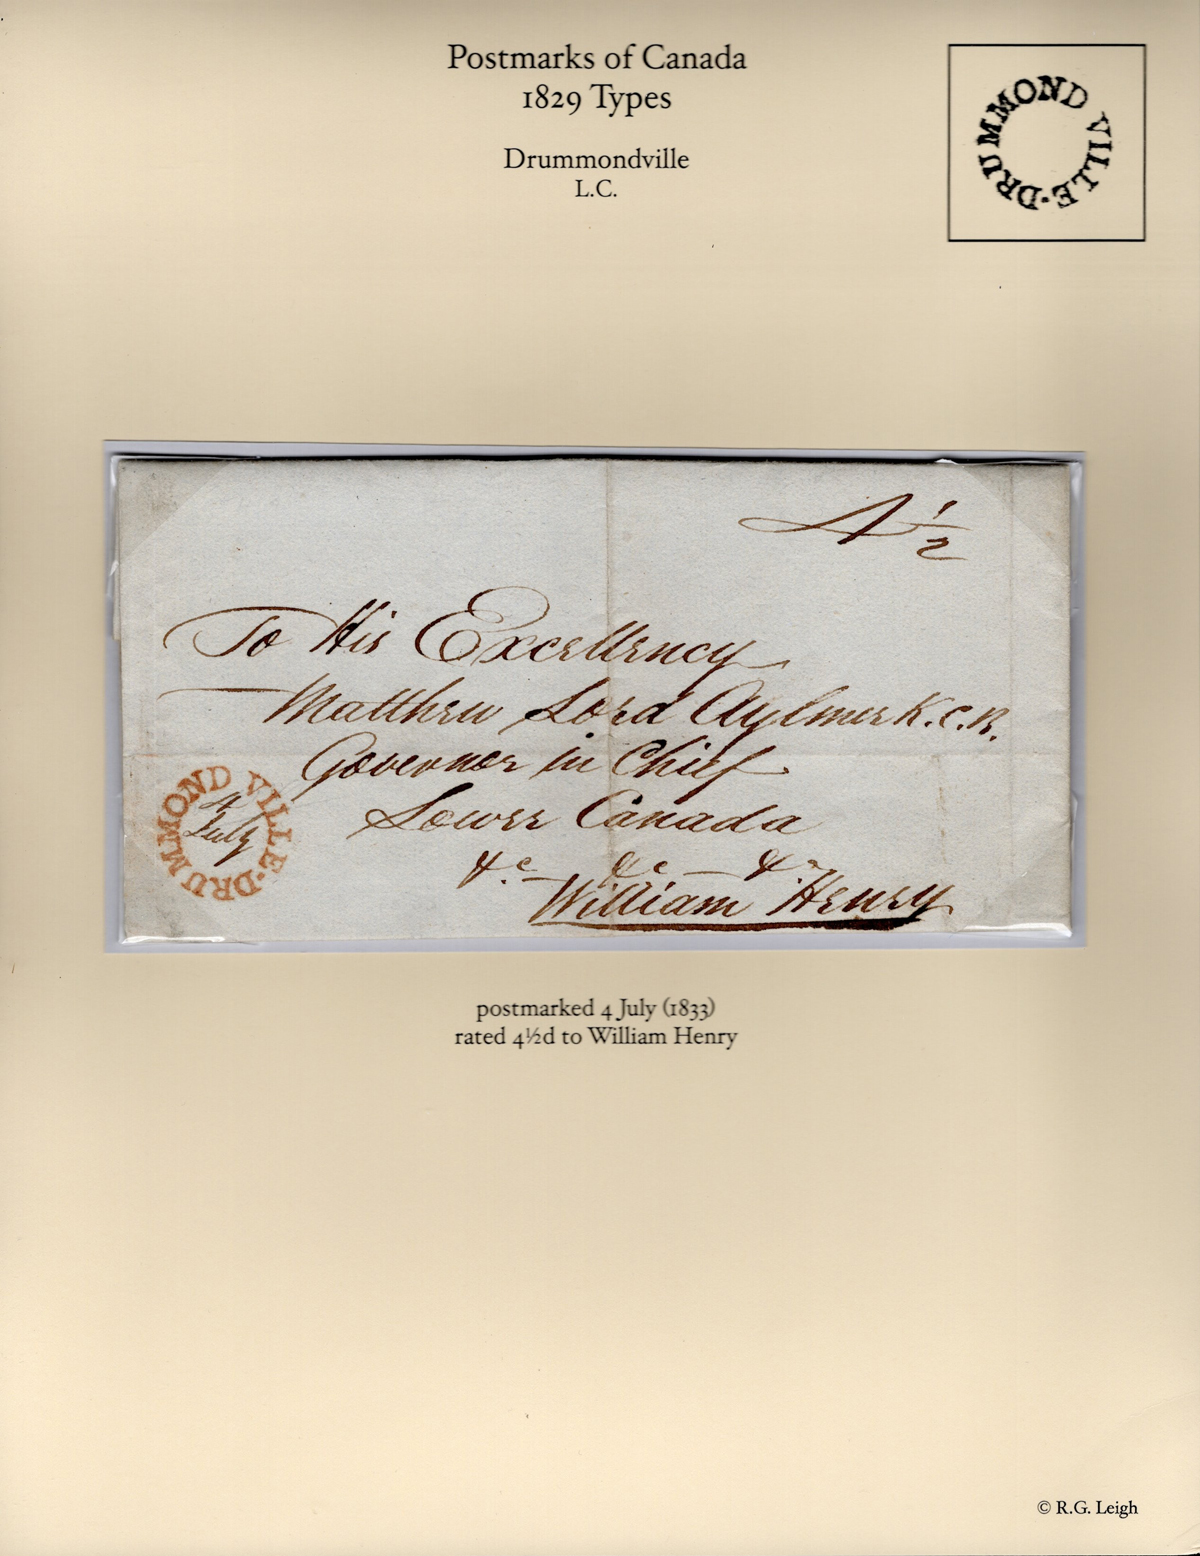 Postmarks of Canada
1829 Types
Drummondville
L.C.
DRUMMOND VILLE·
4 1/2
To His Excellency
Matthew Lord Aylmer K.C.B.
Governor in Chief
Lower Canada
&c &c &c
William Henry
DRUMMOND VILLE·
4
July
postmarked 4 July (1833)
rated 4½d to William Henry
© R.G. Leigh